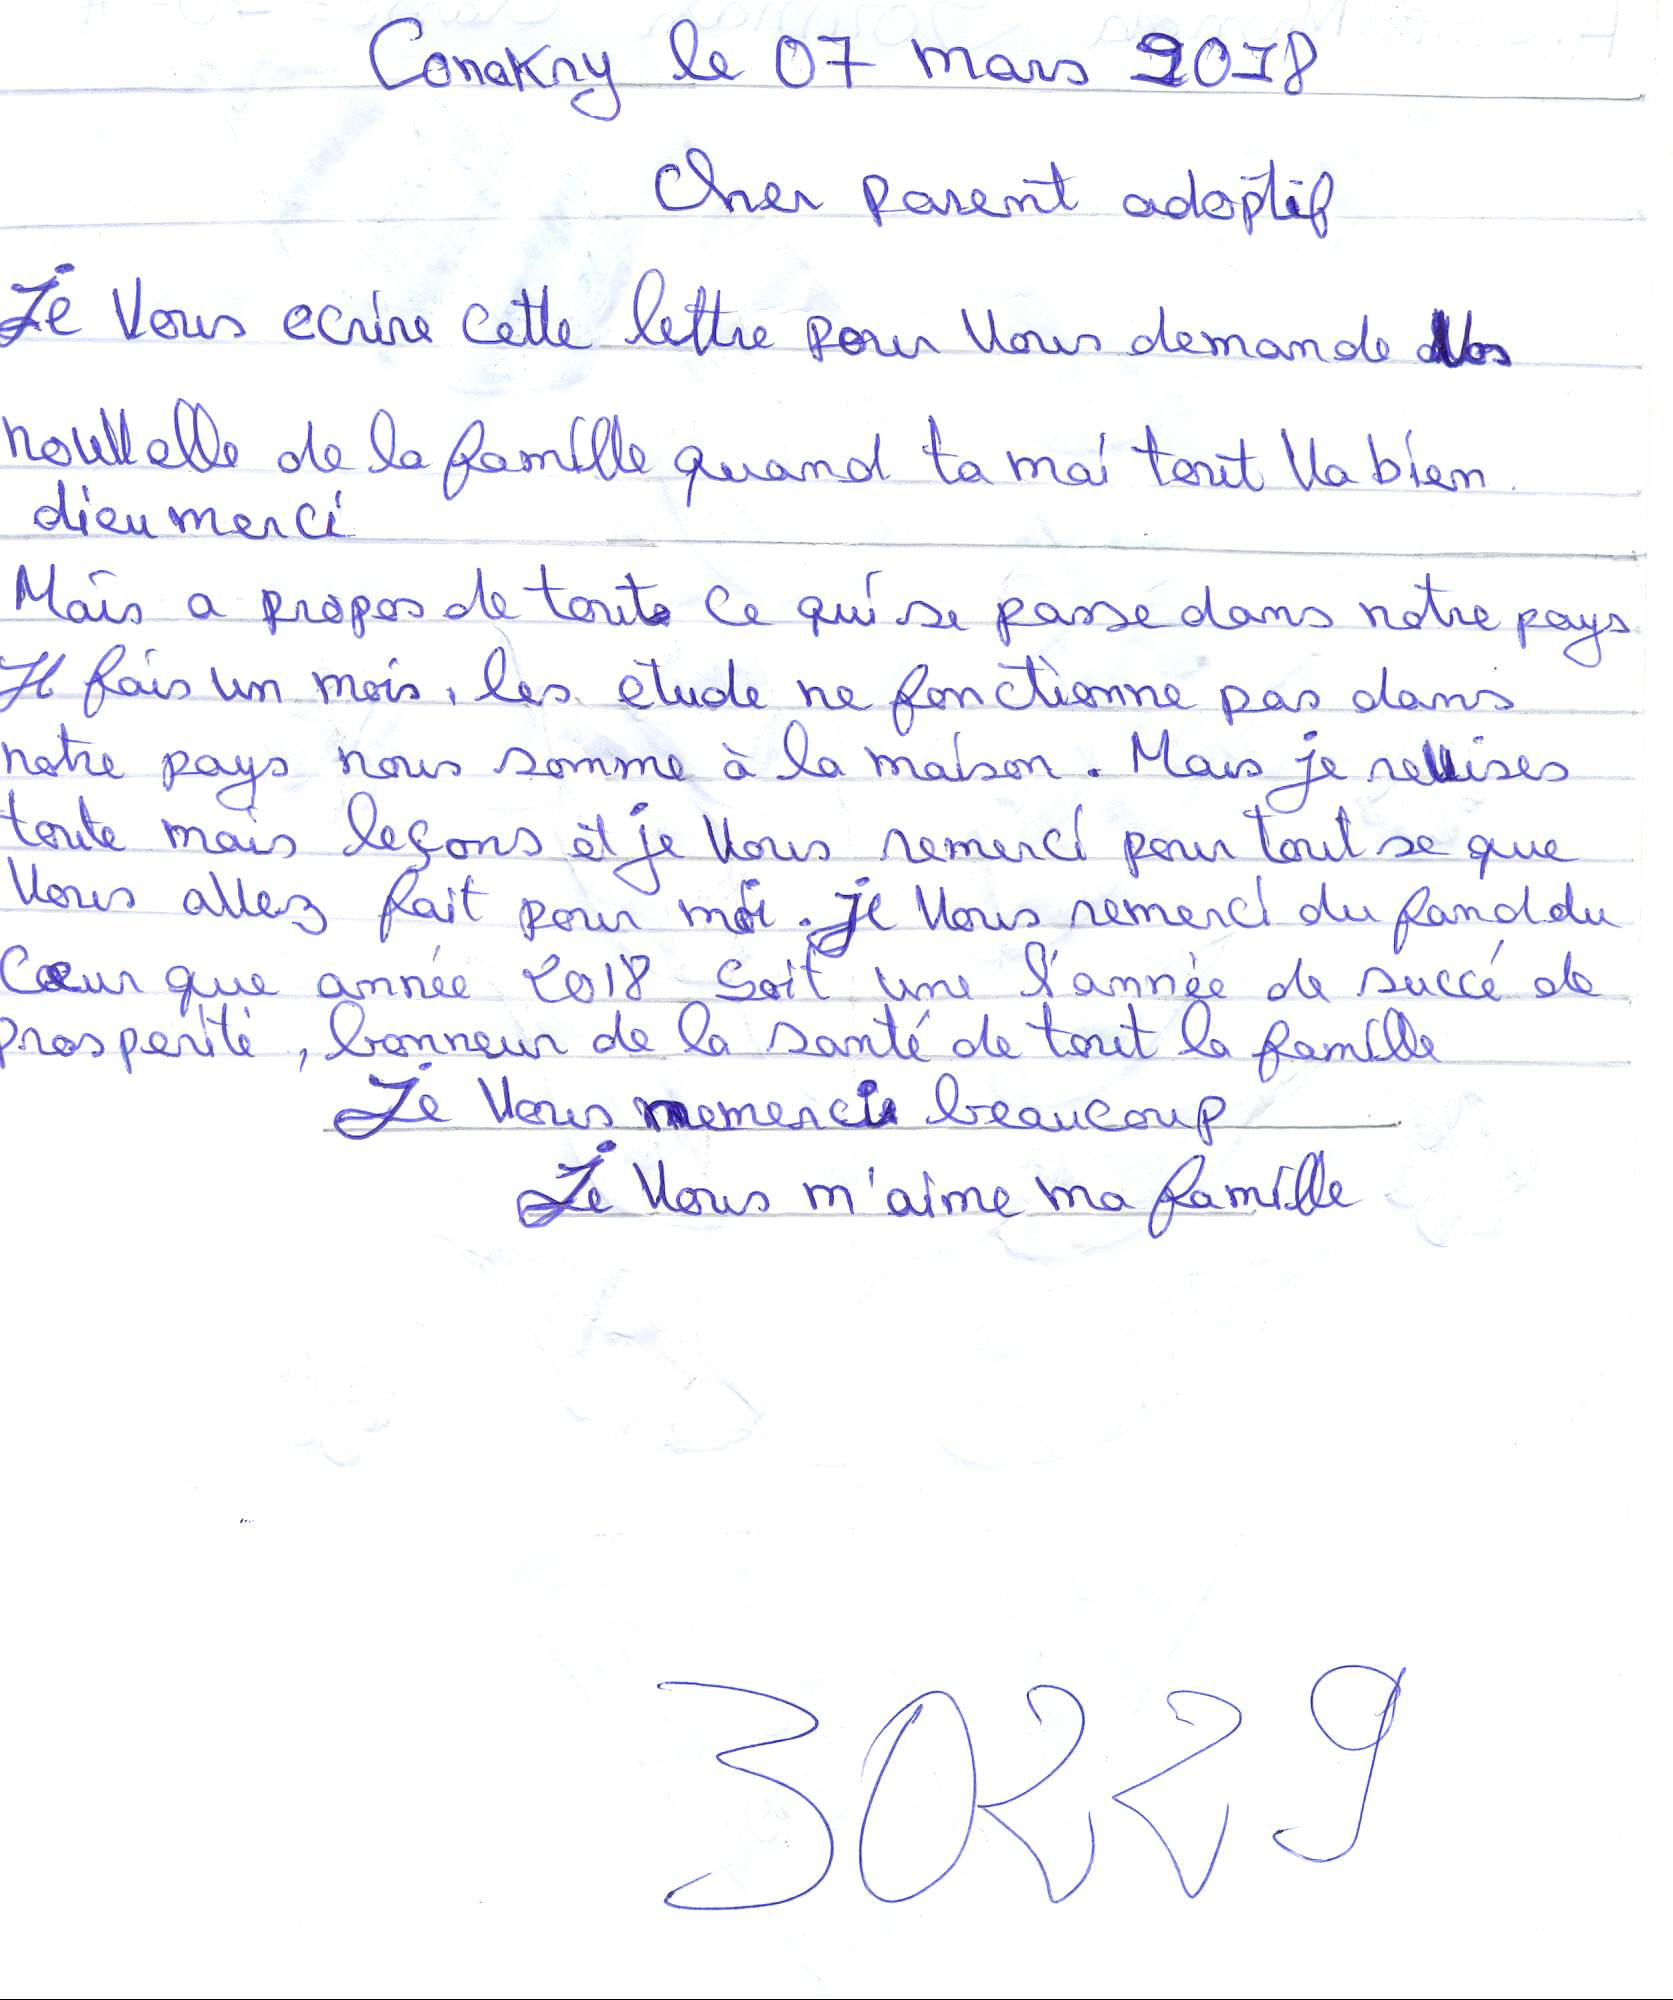 Conakry le 07 mars 2018
Cher parent adoptif
Je vous ecrire cette lettre pour vous demande vos
nouvelle de la famille quand ta mai tout va bien
dieu merci
Mais a propos de toute ce qui se passe dans notre pays
Il fais un mois, les etude ne fonctionne pas dans
notre pays nous somme à la maison. Mais je revises
toute mais leçons et je vous remerci pour tout se que
vous allez fait pour moi. je vous remerci du fand du
Cœur que année 2018 Soit une l'année de succé de
prosperité, bonneur de la santé de tout la famille
Je vous remerci beaucoup
Je vous m'aime ma famille
30229